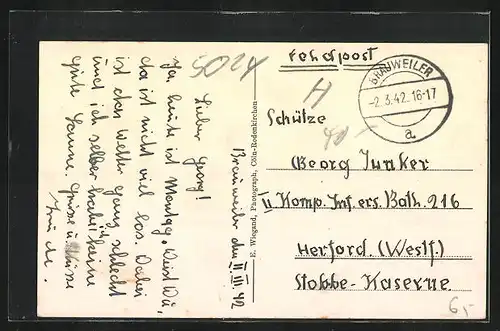 Feldpost
BRAUWEILER
-2.3.42.16-17
a
5024
H
Schütze
Georg Junker
II Komp. Inf. ers. Batl. 216
Herford. (Westf.)
Stobbe-Kaserne
E. Wiegand, Photograph, Cöln-Rodenkirchen
Brauweiler den II III 42
Lieber Georg!
Ja, heute ist Montag, Du,
da ist nicht viel los. Dabei
ist das Wetter ganz schlecht
und ich selber habe ich keine
gute Laune. Grüsse u. Küsse
6,-